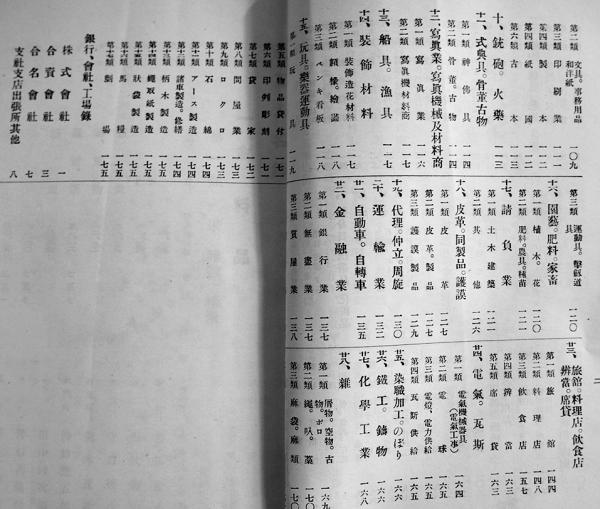 文具。事務用品
和洋紙 一〇九
印刷業
第六類 古本 一一三
十、銃砲。火藥
十一、式典具。骨董古物
第一類 神佛具 一一四
第二類 骨董。古物 一一四
十二、寫眞業。寫眞機械及材料商
第一類 寫眞業 一一六
第二類 寫眞機材料商
十三、船具。漁具 一一七
十四、裝飾材料
第一類 裝飾造花材料
第三類 ペンキ看板 一一八
十五、玩具。樂器運動具
第一類 玩具 一一九
第三類 運動具。擊劍道具 一二〇
十六、園藝。肥料。家畜
第一類 植木。花 一二〇
第二類 肥料。農具。種苗 一二一
十七、請負業
第一類 土木建築 一二一
第二類 其他 一二六
十八、皮革。同製品。護謨
第一類 皮革 一二七
第二類 皮革。製品 一二七
第三類 護謨製品 一二九
十九、代理。仲立。周旋 一三〇
二十、運輸業 一三二
廿一、自動車。自轉車 一三五
廿二、金融業
第一類 銀行業 一三七
第二類 無盡業 一三七
第三類 質屋業 一三八
廿三、旅館。料理店。飲食店
辨當。席貸
第一類 旅館 一四四
第二類 料理店 一四八
第三類 飲食店 一五七
第四類 辨當 一六三
第五類 席貸 一六三
廿四、電氣。瓦斯
第一類 電氣機械器具
(電氣工事) 一六四
第二類 電球 一六五
第三類 電燈、電力供給 一六五
第四類 瓦斯供給 一六五
廿五、染職加工。のぼり 一六六
廿六、鐵工。鑄物 一六六
廿七、化學工業 一六八
廿八、雜
第一類 屑物。空物。古物。ボロ 一六九
第二類 繩。叺。藁 一七〇
第三類 麻袋。麻類 一七〇
第五類 物品貸付 一七一
第六類 印判彫刻 一七一
第七類 貸家 一七二
第八類 問屋業 一七三
第九類 ロクロ 一七三
第十類 石綿 一七四
第十一類 アース製造 一七四
第十二類 諸車製造。修繕 一七四
第十四類 柄木製造 一七五
第十五類 繩取紙製造 一七五
第十六類 狀袋製造 一七五
第十七類 馬糧 一七五
第十八類 劇場 一七五
銀行。會社。工場錄
株式會社 一
合資會社 三
合名會社 七
支社支店出張所其他 八
二